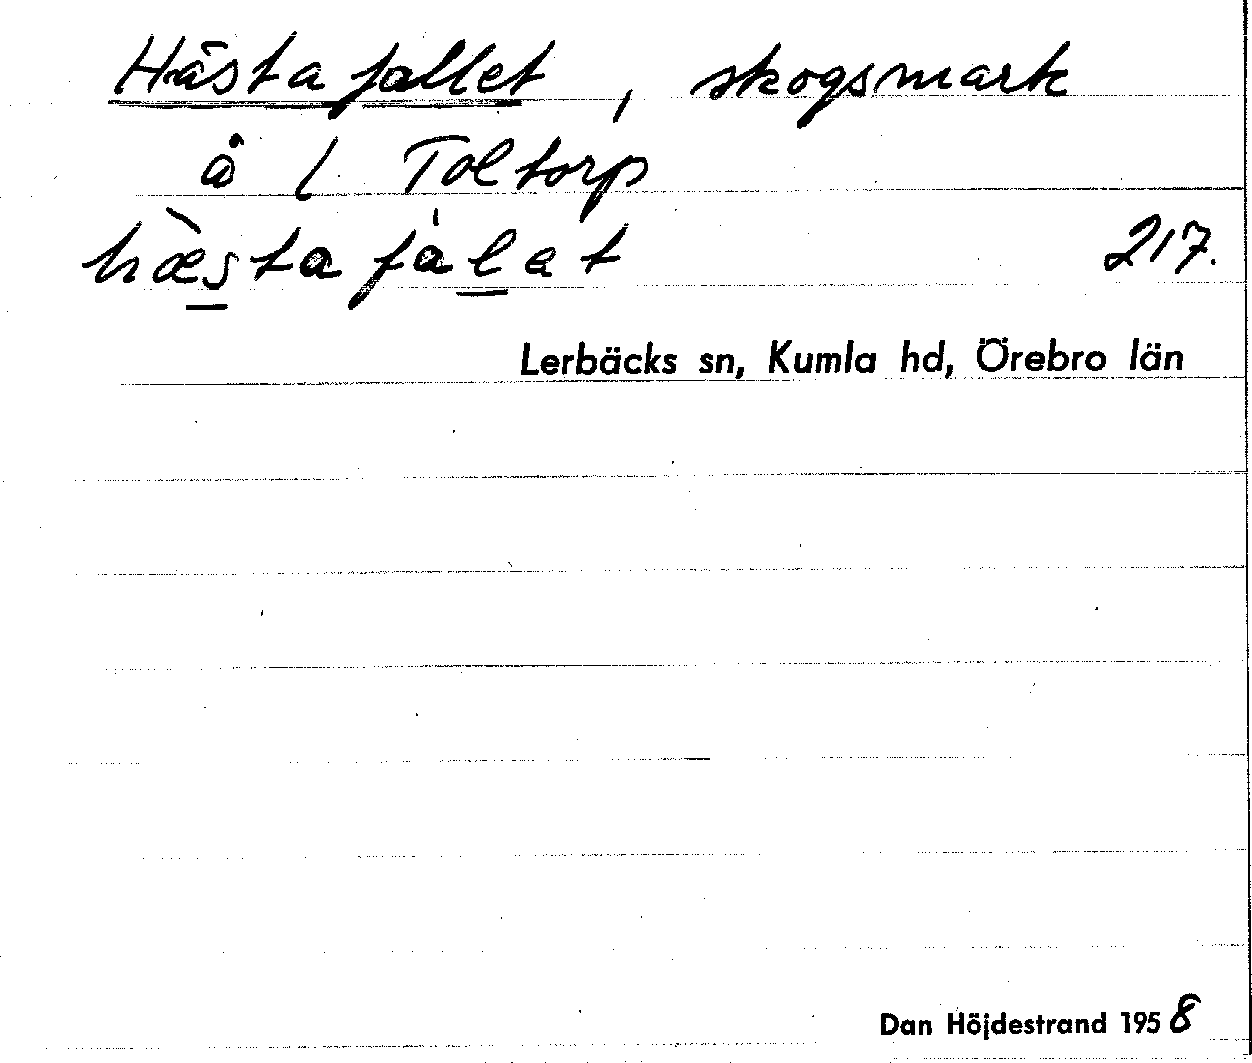 Hästafallet, skogsmark
å l Toltorp
hæ̀stafa̍lat 217.
Lerbäcks sn, Kumla hd, Örebro län
Dan Höjdestrand 1958